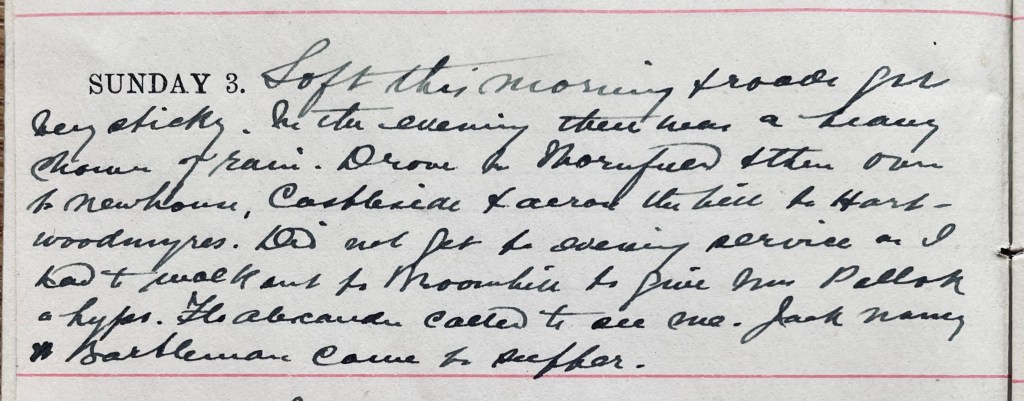 SUNDAY 3. Soft this morning & roads got
very sticky. In the evening there was a heavy
shower of rain. Drove to Thornfield & then over
to Newhouse, Castleside & across the hill to Hart-
woodmyres. Did not get to evening service as I
had to walk out to Broomhill to give Mrs Pollok
a hypo. Flo Alexander called to see me. Jack Nancy
Bartleman came to supper.